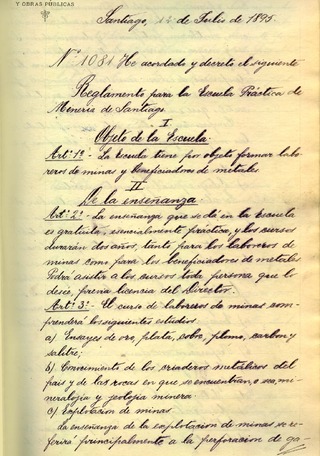 Y OBRAS PÚBLICAS
Santiago, 12 de Julio de 1895.
Nº 1081 He acordado y decreto el siguiente
Reglamento para la Escuela Práctica de
Minería de Santiago
I
Objeto de la Escuela.
Art.º 1º - La Escuela tiene por objeto formar labo-
reros de minas y beneficiadores de metales.
II
De la enseñanza
Art.º 2º - La enseñanza que se dá en la Escuela
es gratuita, esencialmente práctica, y los cursos
durarán dos años, tanto para los laboreros de
minas como para los beneficiadores de metales
Podrá asistir a los cursos toda persona que lo
desée, prévia licencia del Director.
Art.º 3º - El curso de laboreros de minas com-
prenderá los siguientes estudios.
a) Ensayes de oro, plata, cobre, plomo, carbon y
salitre;
b) Conocimiento de los criaderos metálicos del
pais y de las rocas en que se encuentran, o sea, mi-
neralojia y jeolojia minera.
c) Esplotacion de minas.
La enseñanza de la esplotacion de minas se re-
ferirá principalmente a la perforacion de ga-